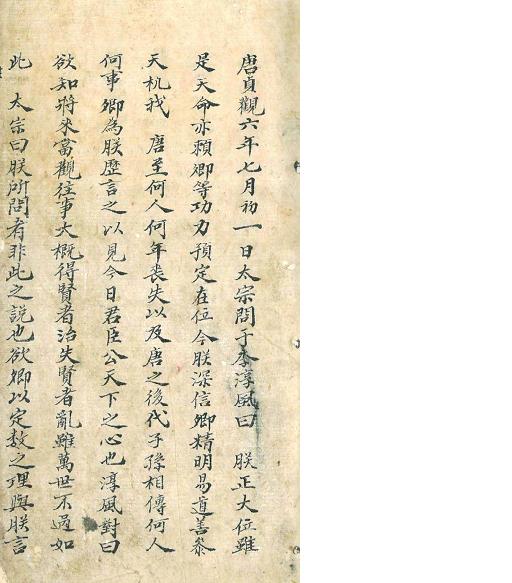 唐貞觀六年七月初一日太宗問于李淳風曰　朕正大位雖
是天命亦頼卿等功力預定在位今朕深信卿精明易道善叅
天机我　唐至何人何年丧失以及唐之後代子孫相傳何人
何事卿為朕歷言之以見今日君臣公天下之心也淳風對曰
欲知將來當觀往事大概得賢者治失賢者亂雖萬世不過如
此　太宗曰朕所問者非此之說也欲卿以定数之理與朕言